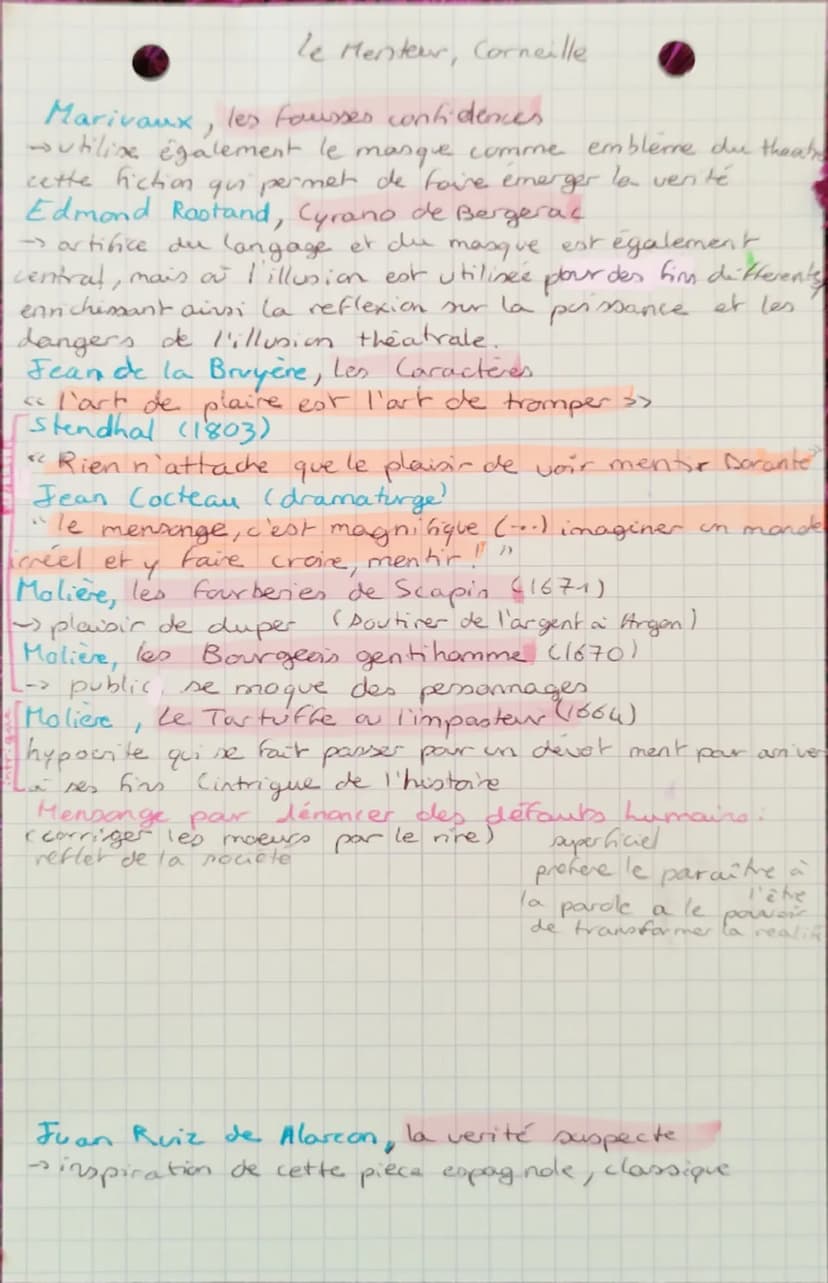 le Menteur, Corneille
Marivaux, les fausses confidences
→ utilise également le masque comme emblème du theatre
cette fiction qui permet de faire émerger la verité
Edmond Rostand, Cyrano de Bergerac
→ artifice du langage et du masque est également
central, mais où l'illusion est utilisée pour des fins différentes
enrichissant ainsi la reflexion sur la puissance et les
dangers de l'illusion théatrale.
Jean de la Bruyère, Les Caractères
<< l'art de plaire est l'art de tromper >>
Stendhal (1803)
" Rien n'attache que le plaisir de voir mentir Dorante "
Jean Cocteau (dramaturge)
" le mensonge, c'est magnifique (...) imaginer un monde
irréel et y faire croire, mentir ! "
Molière, les fourberies de Scapin (1671)
→ plaisir de duper (soutirer de l'argent à Argan)
Molière, les Bourgeois gentihomme (1670)
→ public se moque des personnages
Molière, Le Tartuffe ou l'imposteur (1664)
intrigue
hypocrite qui se fait passer pour un dévot ment pour arriver
à ses fins (intrigue de l'histoire
Mensonge par dénoncer des défauts humains :
(corriger les moeurs par le rire) superficiel
reflet de la société
préfère le paraître à
l'être
la parole a le pouvoir
de transformer la realité
Juan Ruiz de Alarcon, la verité suspecte
→ inspiration de cette pièce espagnole, classique